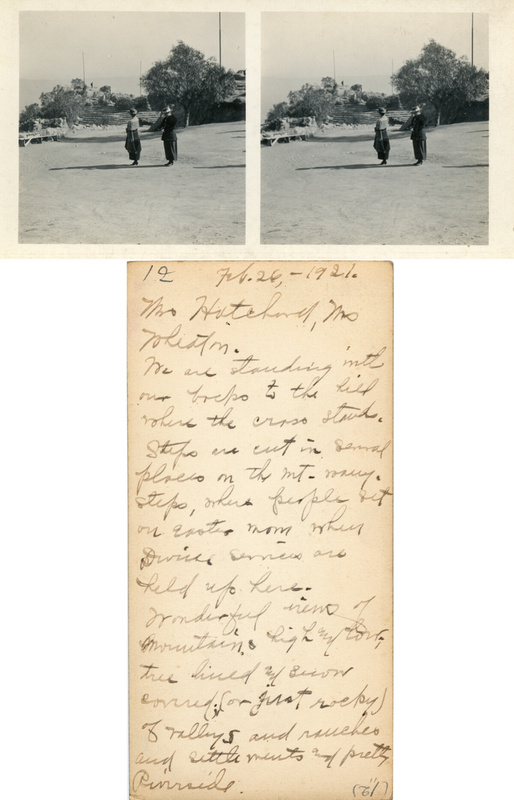 12 Feb. 28, - 1921.
Mrs Hatchard, Mrs
Wheaton.
We are standing with
our backs to the hill
where the cross stands.
Steps are cut in several
places on the mt. many.
steps, where people sit
on easter morn when
Divine services are
held up here.
Wonderful views of
Mountains high & low,
tree lined & snow
covered, (or just rocky)
of valleys and ranches
and settlements & pretty
Riverside.
(12)